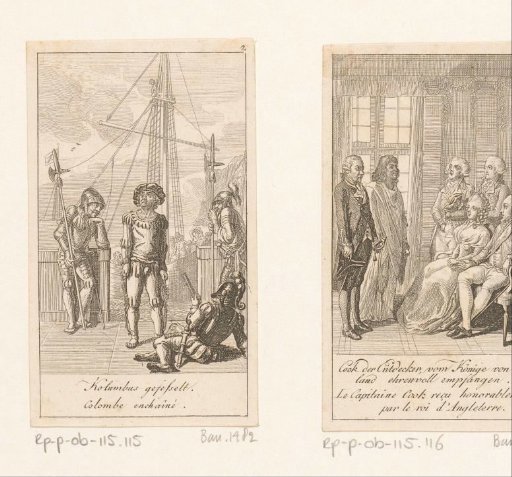 2
Kolumbus gefesselt.
Colombe enchainé.
Rp-p-ob-115.115
Bau.1482
Cook der Entdecker, vom Könige von
land ehrenvoll empfangen.
Le Capitaine Cook reçu honorable
par le roi d'Angleterre.
Rp-p-ob-115.116